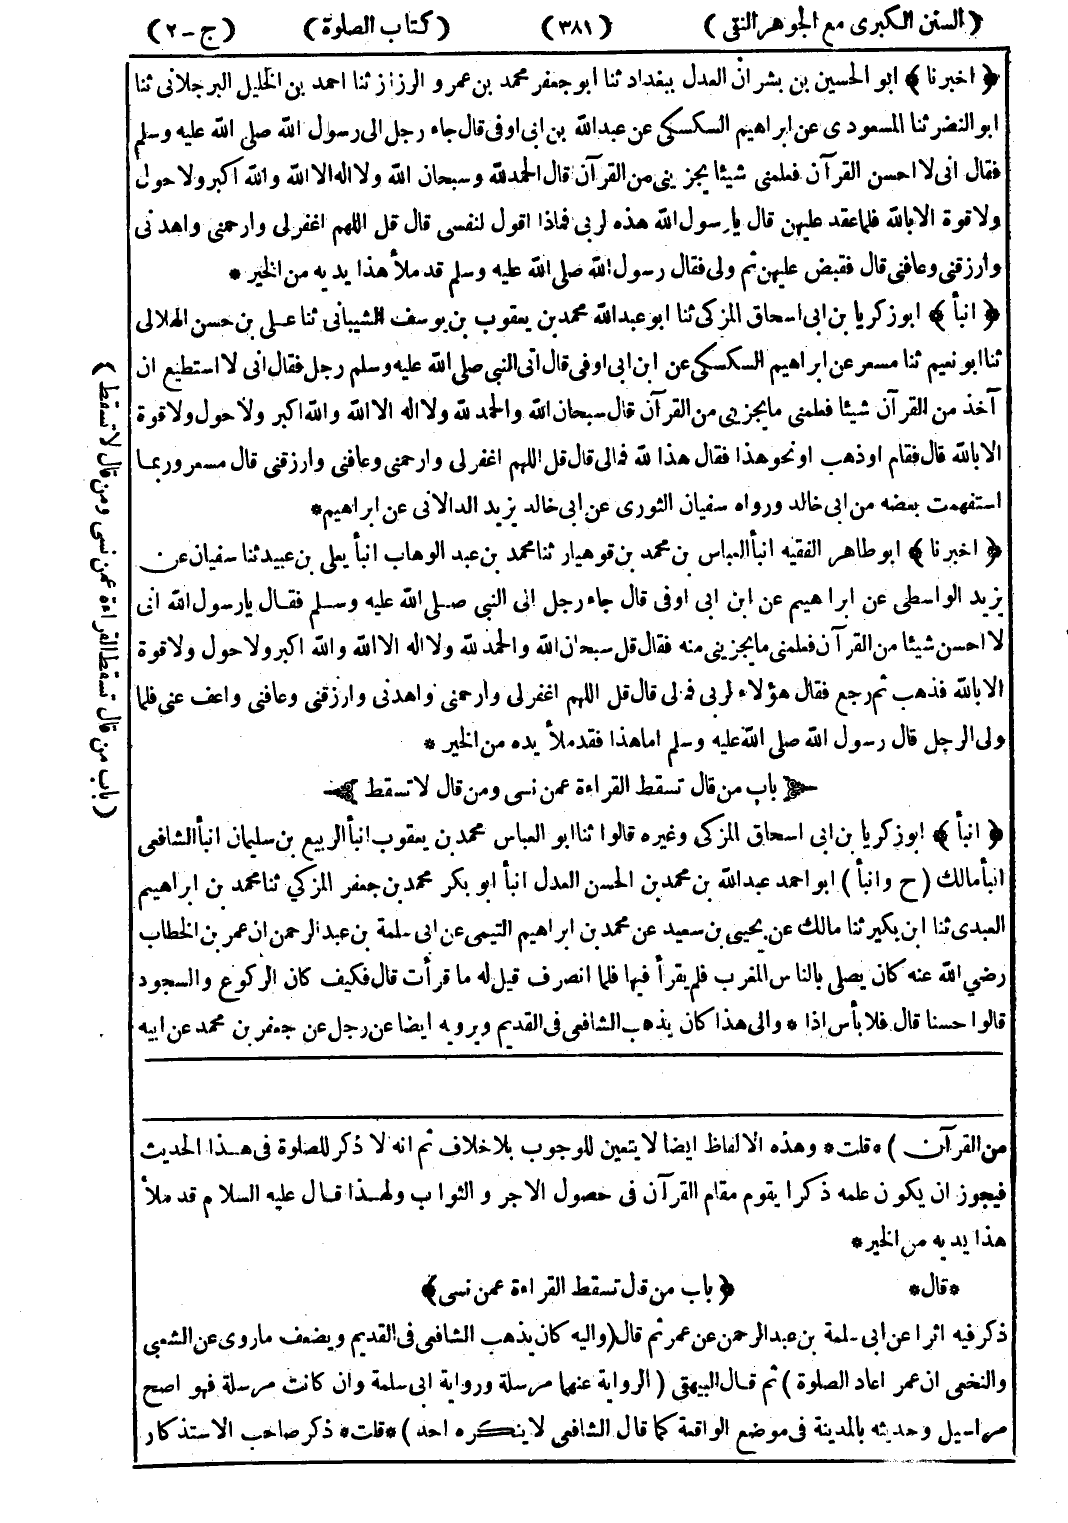 (السنن الكبرى مع الجوهر النقى) (٣٨١) (كتاب الصلوة) (ج-٢)
﴿اخبرنا﴾ ابو الحسين بن بشران العدل ببغداد ثنا ابو جعفر محمد بن عمرو الرزاز ثنا احمد بن الخليل البرجلانى ثنا
ابو النضر ثنا المسعودى عن ابراهيم السكسكى عن عبدالله بن ابى اوفى قال جاء رجل الى رسول الله صلى الله عليه وسلم
فقال انى لا احسن القرآن فعلمنى شيئا يجزينى من القرآن قال الحمد لله وسبحان الله ولا اله الا الله والله اكبر ولا حول
ولا قوة الا بالله فلما عقد عليهن قال يا رسول الله هذه لربى فماذا اقول لنفسى قال قل اللهم اغفر لى وارحمنى واهدنى
وارزقنى وعافنى قال فقبض عليهن ثم ولى فقال رسول الله صلى الله عليه وسلم قد ملأ هذا يديه من الخير *
﴿انبأ﴾ ابو زكريا بن ابى اسحاق المزكى ثنا ابو عبدالله محمد بن يعقوب بن يوسف الشيبانى ثنا على بن حسن الهلالى
ثنا ابو نعيم ثنا مسعر عن ابراهيم السكسكى عن ابن ابى اوفى قال اتى النبى صلى الله عليه وسلم رجل فقال انى لا استطيع ان
آخذ من القرآن شيئا فعلمنى ما يجزينى من القرآن قال سبحان الله والحمد لله ولا اله الا الله والله اكبر ولا حول ولا قوة
الا بالله قال فقام او ذهب او نحو هذا فقال هذا لله فمالى قال قل اللهم اغفر لى وارحمنى وعافنى وارزقنى قال مسعر وربما
استفهمت بعضه من ابى خالد ورواه سفيان الثورى عن ابى خالد يزيد الدالانى عن ابراهيم*
﴿اخبرنا﴾ ابو طاهر الفقيه انبأ العباس بن محمد بن قوهيار ثنا محمد بن عبد الوهاب انبأ يعلى بن عبيد ثنا سفيان عن
يزيد الواسطى عن ابراهيم عن ابن ابى اوفى قال جاء رجل الى النبى صلى الله عليه وسلم فقال يا رسول الله انى
لا احسن شيئا من القرآن فعلمنى ما يجزينى منه فقال قل سبحان الله والحمد لله ولا اله الا الله والله اكبر ولا حول ولا قوة
الا بالله فذهب ثم رجع فقال هؤلاء لربى فمالى قال قل اللهم اغفر لى وارحمنى واهدنى وارزقنى وعافنى واعف عنى فلما
ولى الرجل قال رسول الله صلى الله عليه وسلم اما هذا فقد ملأ يده من الخير *
باب من قال تسقط القراءة عمن نسى ومن قال لا تسقط
﴿انبأ﴾ ابو زكريا بن ابى اسحاق المزكى وغيره قالوا ثنا ابو العباس محمد بن يعقوب انبأ الربيع بن سليمان انبأ الشافعى
انبأ مالك (ح وانبأ) ابو احمد عبدالله بن محمد بن الحسن العدل انبأ ابو بكر محمد بن جعفر المزكي ثنا محمد بن ابراهيم
العبدى ثنا ابن بكير ثنا مالك عن يحيى بن سعيد عن محمد بن ابراهيم التيمى عن ابى سلمة بن عبد الرحمن ان عمر بن الخطاب
رضي الله عنه كان يصلى بالناس المغرب فلم يقرأ فيها فلما انصرف قيل له ما قرأت قال فكيف كان الركوع والسجود
قالوا حسنا قال فلا بأس اذا * والى هذا كان يذهب الشافعى فى القديم ويرويه ايضا عن رجل عن جعفر بن محمد عن ابيه
(باب من قال تسقط القراءة عمن نسى ومن قال لا تسقط)
من القرآن) *قلت* وهذه الالفاظ ايضا لا يتعين للوجوب بلا خلاف ثم انه لا ذكر للصلوة فى هذا الحديث
فيجوز ان يكون علمه ذكرا يقوم مقام القرآن فى حصول الاجر والثواب ولهذا قال عليه السلام قد ملأ
هذا يديه من الخير*
*قال* ﴿باب من قال تسقط القراءة عمن نسى﴾
ذكر فيه اثرا عن ابى سلمة بن عبد الرحمن عن عمر ثم قال (واليه كان يذهب الشافعى فى القديم ويضعف ما روى عن الشعبى
والنخعى ان عمر اعاد الصلوة) ثم قال البيهقى (الرواية عنهما مرسلة ورواية ابى سلمة وان كانت مرسلة فهو اصح
مراسيل وحديثه بالمدينة فى موضع الواقعة كما قال الشافعى لا ينكره احد) *قلت* ذكر صاحب الاستذكار